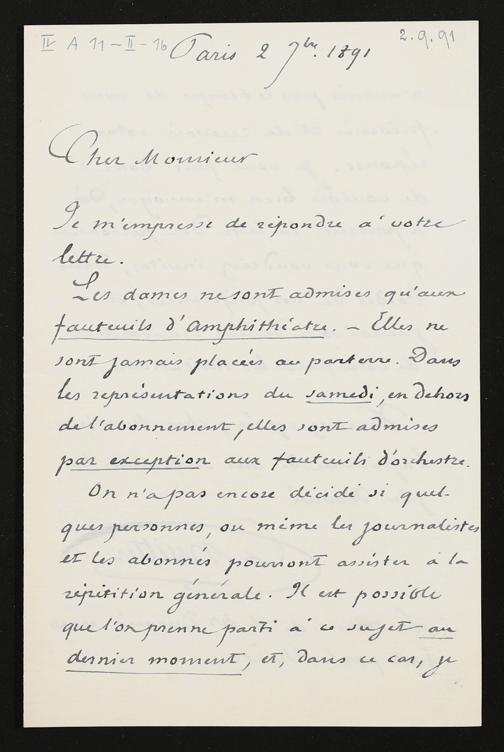 IV A 11-II-16
2.9.91
Paris 2 7bre. 1891
Cher Monsieur
Je m'empresse de répondre à votre
lettre.
Les dames ne sont admises qu'aux
fauteuils d'Amphithéatre. – Elles ne
sont jamais placées au parterre. Dans
les représentations du samedi, en dehors
de l'abonnement, elles sont admises
par exception aux fauteuils d'orchestre.
On n'a pas encore décidé si quel-
ques personnes, ou même les journalistes
et les abonnés pourront assister à la
répétition générale. Il est possible
que l'on prenne parti à ce sujet au
dernier moment, et, dans ce cas, je